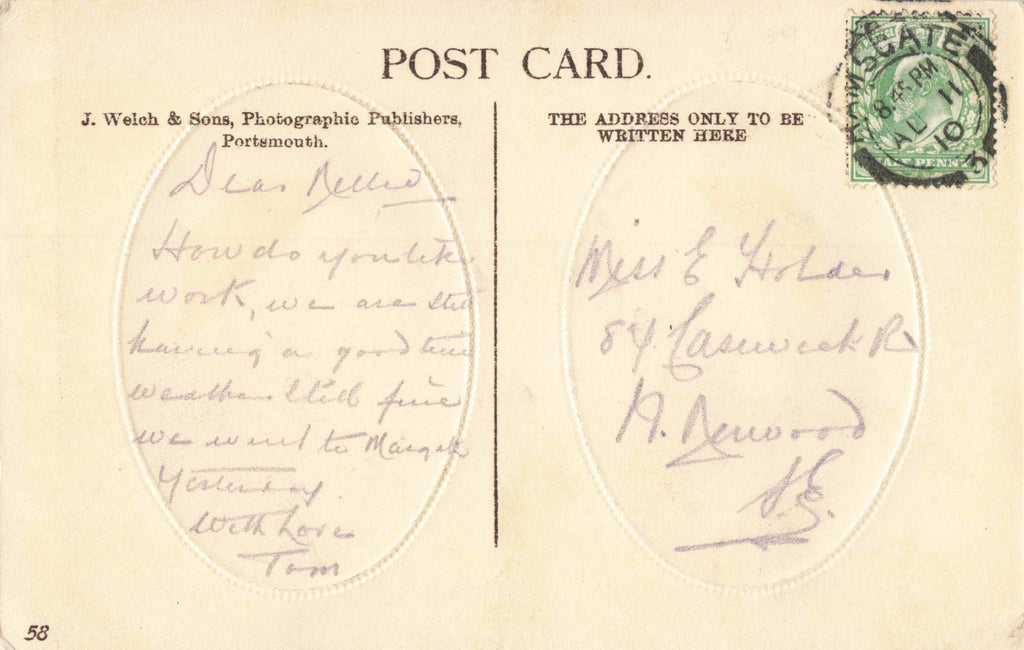 POST CARD.
J. Welch & Sons, Photographic Publishers,
Portsmouth.
THE ADDRESS ONLY TO BE
WRITTEN HERE
RAMSGATE
8.45 PM
AU 11
10
3
Dear Nellie
How do you like
work, we are still
having a good time
weather still fine
we went to Margate
Yesterday
With Love
Tom
Miss E Holder
84 R
Norwood
S.E.
58